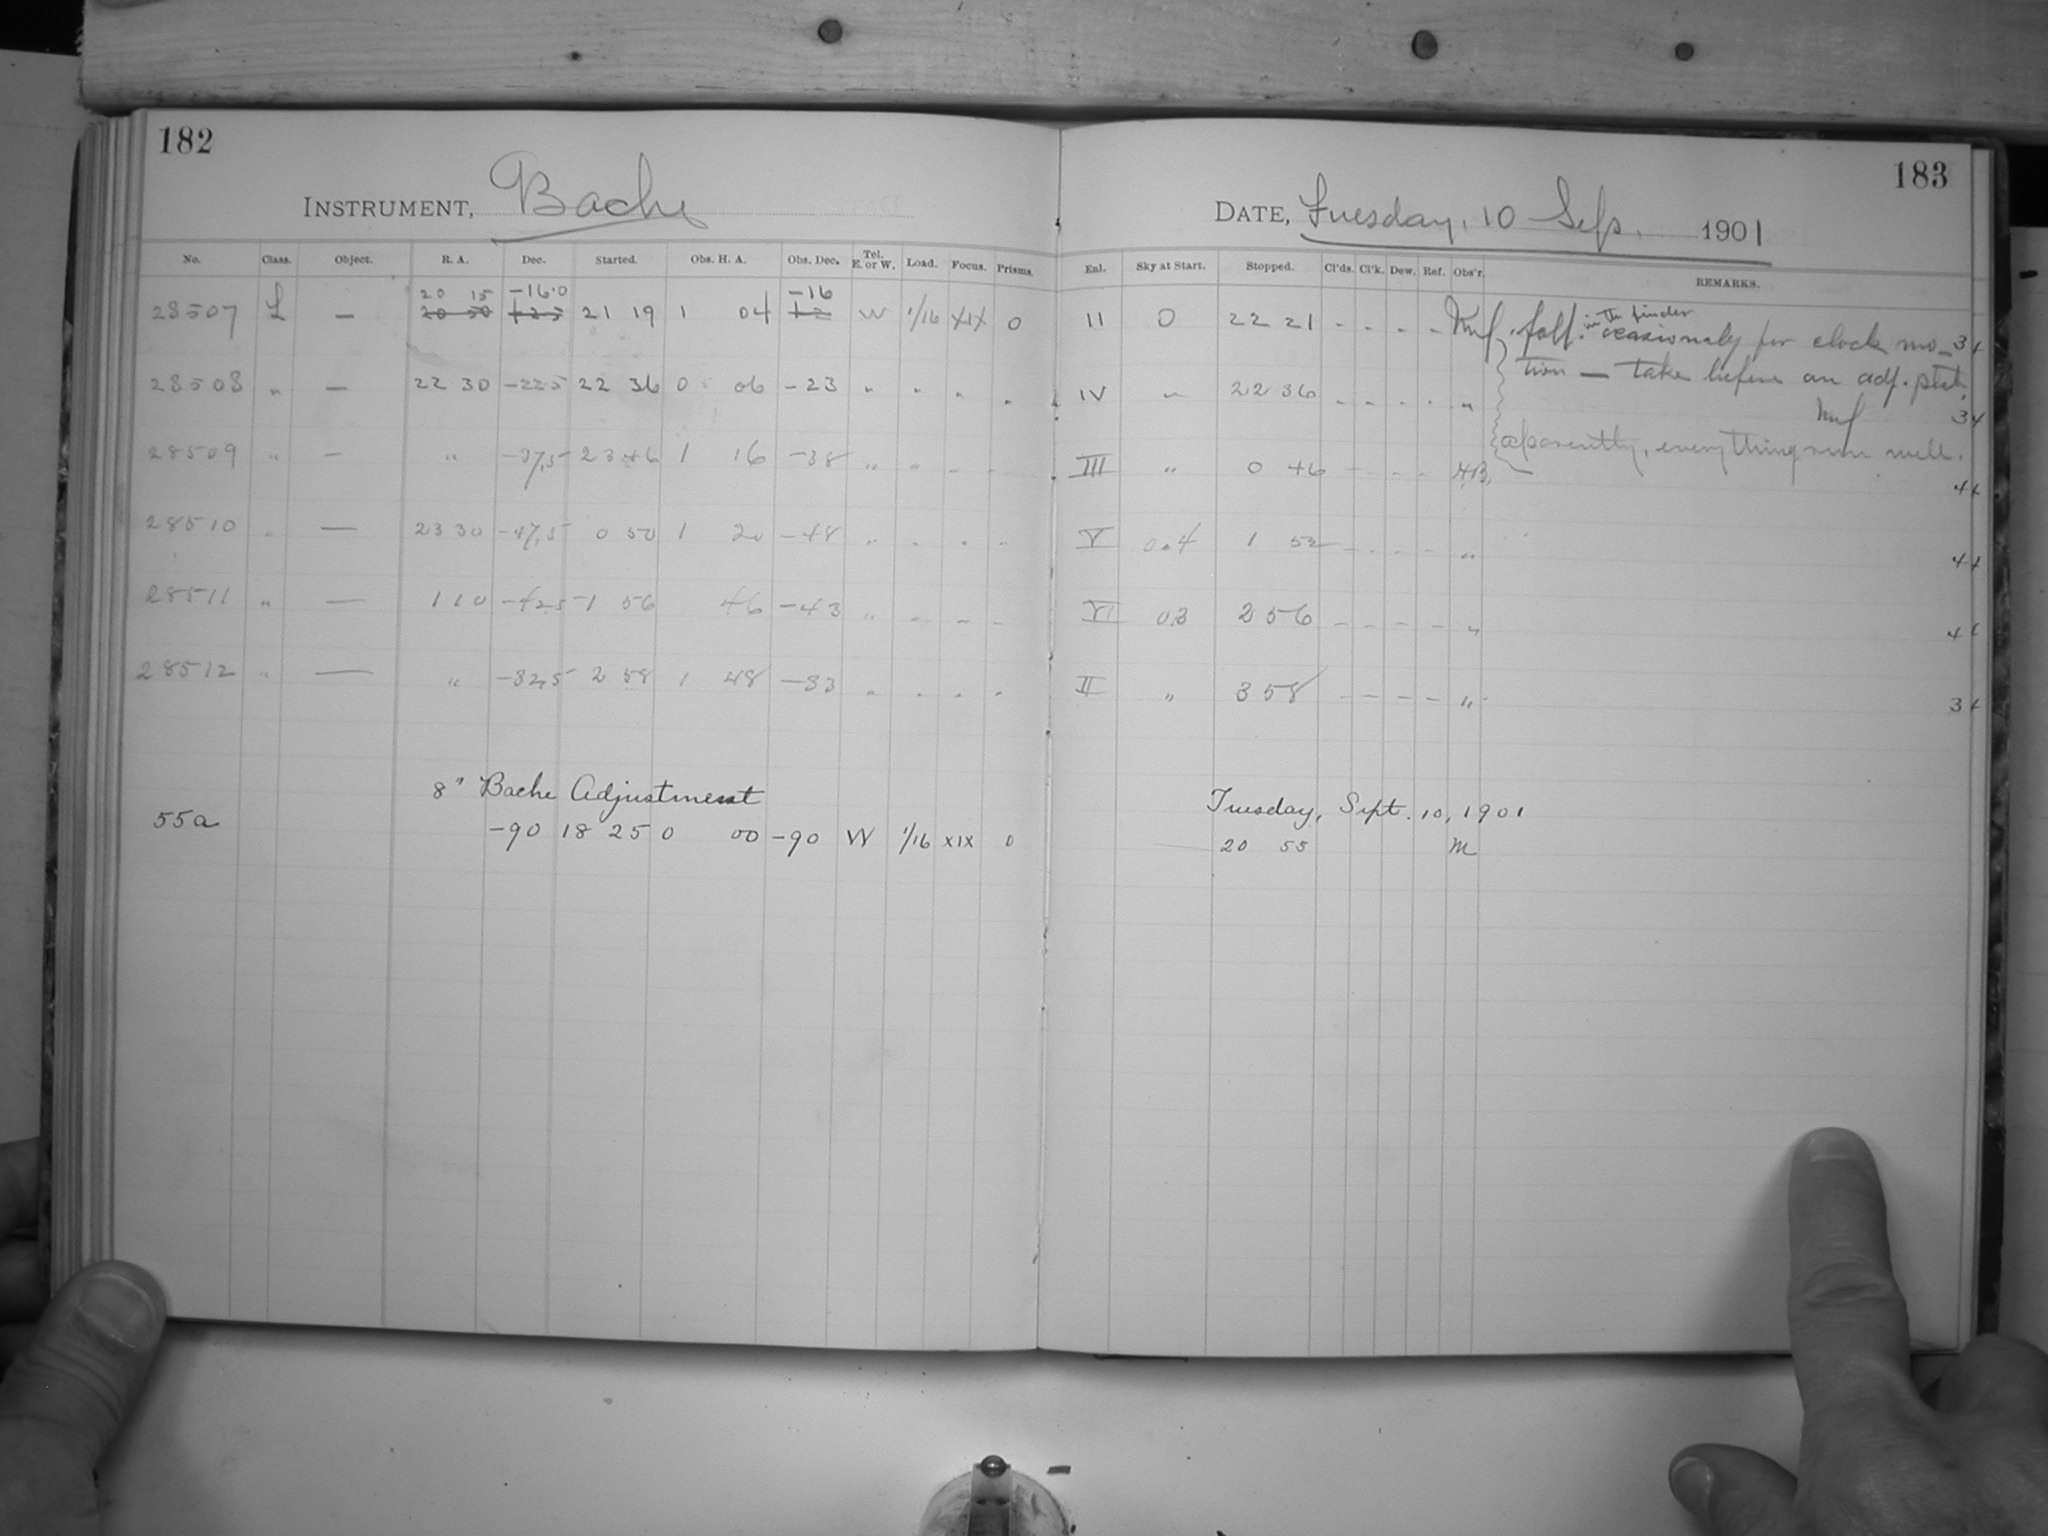 182
183
INSTRUMENT, Bache
DATE, Tuesday, 10 Sep. 1901
No. Class. Object. R. A. Dec. Started. Obs. H. A. Obs. Dec. Tel. E. or W. Load. Focus. Prisms. Enl. Sky at Start. Stopped. Cl'ds. Cl'k. Dew. Ref. Obs'r. REMARKS.
20 15 -16.0 -16
28507 L — 20 50 21 19 1 04 W 1/16 XIX 0 II 0 22 21 - - - - foll. in the finder occasionaly for clock mo- 3+
28508 " — 22 30 -22.5 22 36 0 06 -23 " " " " IV " 22 36 - - - - " tion — take before an adj. plate, 3+
28509 " — " -37.5 23 46 1 16 -38 " " " - III " 0 46 - - - - apparently, everything run well. 4+
28510 " — 23 30 -47.5 0 50 1 20 -48 " " " " V 0.4 1 52 - - - - " 4+
28511 " — 1 10 -42.5 1 56 46 -43 " " - - VI 0.3 2 56 - - - - " 4+
28512 " — " -32.5 2 58 1 48 -33 " " " " II " 3 58 - - - - " 3+
8" Bache Adjustment Tuesday, Sept. 10, 1901
55a -90 18 25 0 00 -90 W 1/16 XIX 0 20 55 M